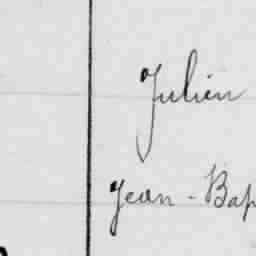 Julien
Jean-Bap